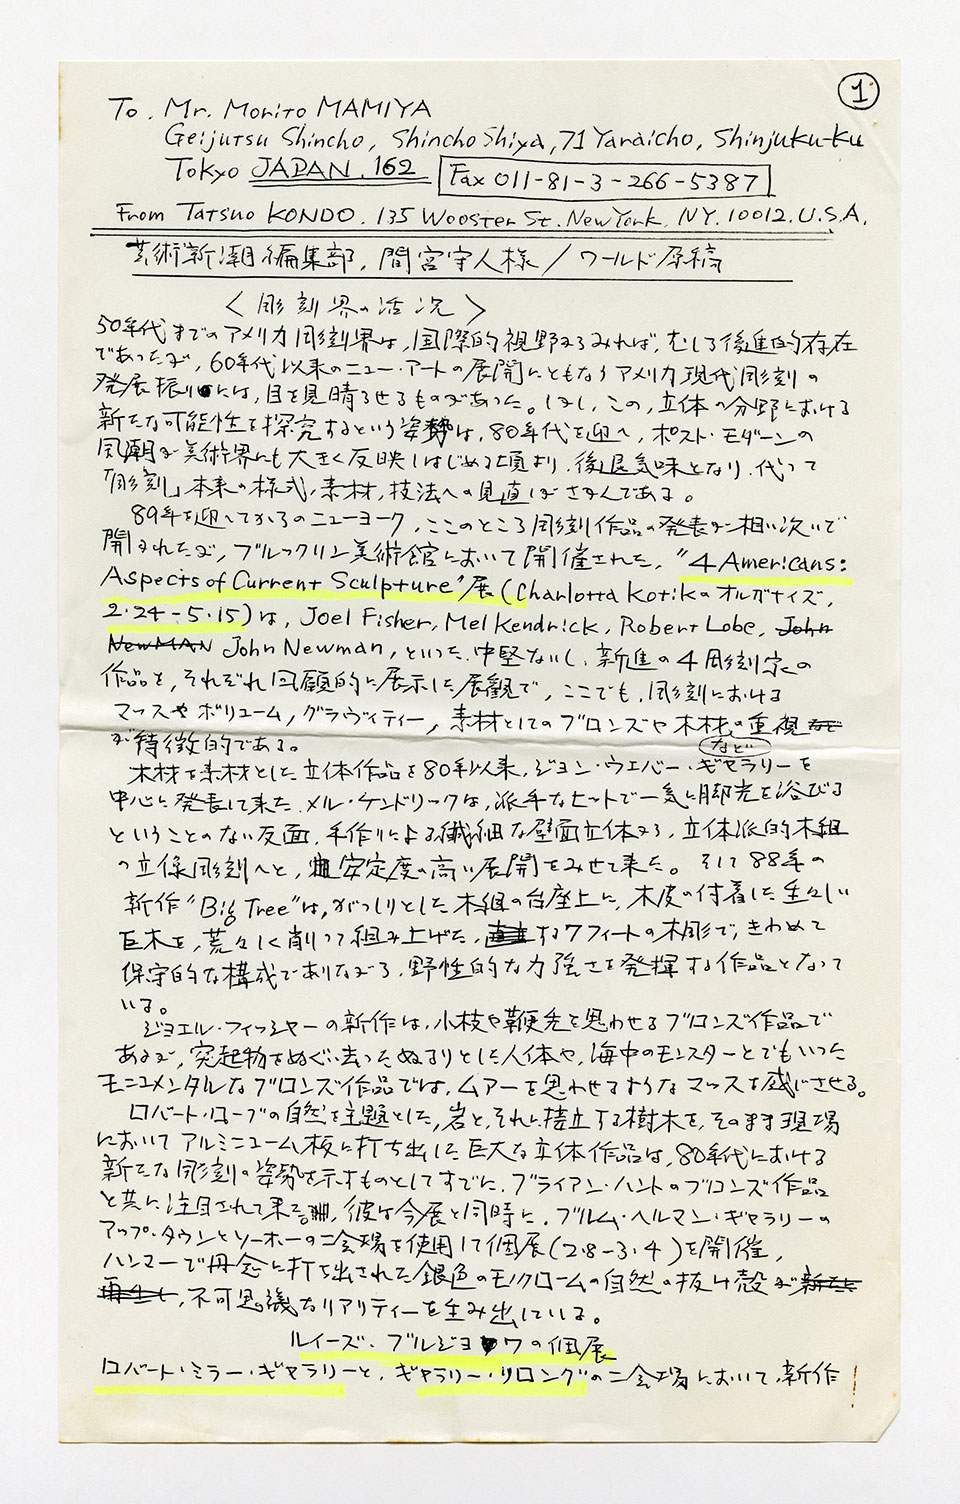 ①
To. Mr. Morito MAMIYA
Geijutsu Shincho, Shincho Shiya, 71 Yaraicho, Shinjuku-Ku
Tokyo JAPAN. 162 Fax 011-81-3-266-5387
From Tatsuo KONDO. 135 Wooster St. New York. NY. 10012. U.S.A.
芸術新潮編集部, 間宮守人様 / ワールド原稿
〈彫刻界の活況〉
50年代までのアメリカ彫刻界は, 国際的視野からみれば, むしろ後進的存在
であったが, 60年代以来のニュー・アートの展開にともなうアメリカ現代彫刻の
発展振りには, 目を見晴らせるものがあった。しかし, この, 立体の分野における
新たな可能性を探究するという姿勢は, 80年代を迎へ, ポスト・モダーンの
風潮が美術界にも大きく反映しはじめる頃より, 後退気味となり, 代って
「彫刻」本来の様式, 素材, 技法への見直しがさかんである。
89年を迎へてからのニューヨーク, ここのところ彫刻作品の発表が相い次いで
開かれたが, ブルックリン美術館において開催された, "4 Americans:
Aspects of Current Sculpture"展 (Charlotta Kotikのオルガナイズ,
2・24-5・15) は, Joel Fisher, Mel Kendrick, Robert Lobe, John
NewMAN John Newman, といった, 中堅ないし, 新進の4彫刻家の
作品を, それぞれ回顧的に展示した展観で, ここでも, 彫刻における
マッスやボリューム, グラヴィティー, 素材としてのブロンズや木材などの重視
が特徴的である。
木材を素材とした立体作品を80年以来, ジョン・ウエバー・ギャラリーを
中心に発表して来た, メル・ケンドリックは, 派手なヒットで一気に脚光を浴びる
ということのない反面, 手作りによる繊細な壁面立体から, 立体派的木組
の立像彫刻へと, 安定度の高い展開をみせて来た。そして88年の
新作"Big Tree"は, がっしりとした木組の台座上に, 木皮の付着した生々しい
巨木を, 荒々しく削って組み上げた, する7フィートの木彫で, きわめて
保守的な構成でありながら, 野性的な力強さを発揮する作品となって
いる。
ジョエル・フィッシャーの新作は, 小枝や鞭先を思わせるブロンズ作品で
あるが, 突起物をぬぐい去ったぬるりとした人体や, 海中のモンスターとでもいった
モニュメンタルなブロンズ作品では, ムアーを思わせるようなマッスを感じさせる。
ロバート・ローブの自然を主題とした, 岩と, それに接立する樹木を, そのまま現場
においてアルミニューム板に打ち出した巨大な立体作品は, 80年代における
新たな彫刻の姿勢を示すものとしてすでに, ブライアン・ハントのブロンズ作品
と共に注目されて来た, 彼は今展と同時に, ブルム・ヘルマン・ギャラリーの
アップ・タウンとソーホーの二会場を使用して個展 (2・8-3・4) を開催,
ハンマーで丹念に打ち出された銀色のモノクロームの自然の抜け殻が
, 不可思議なリアリティーを生み出している。
ルイーズ・ブルジョワの個展
ロバート・ミラー・ギャラリーと, ギャラリー・リロングの二会場において, 新作